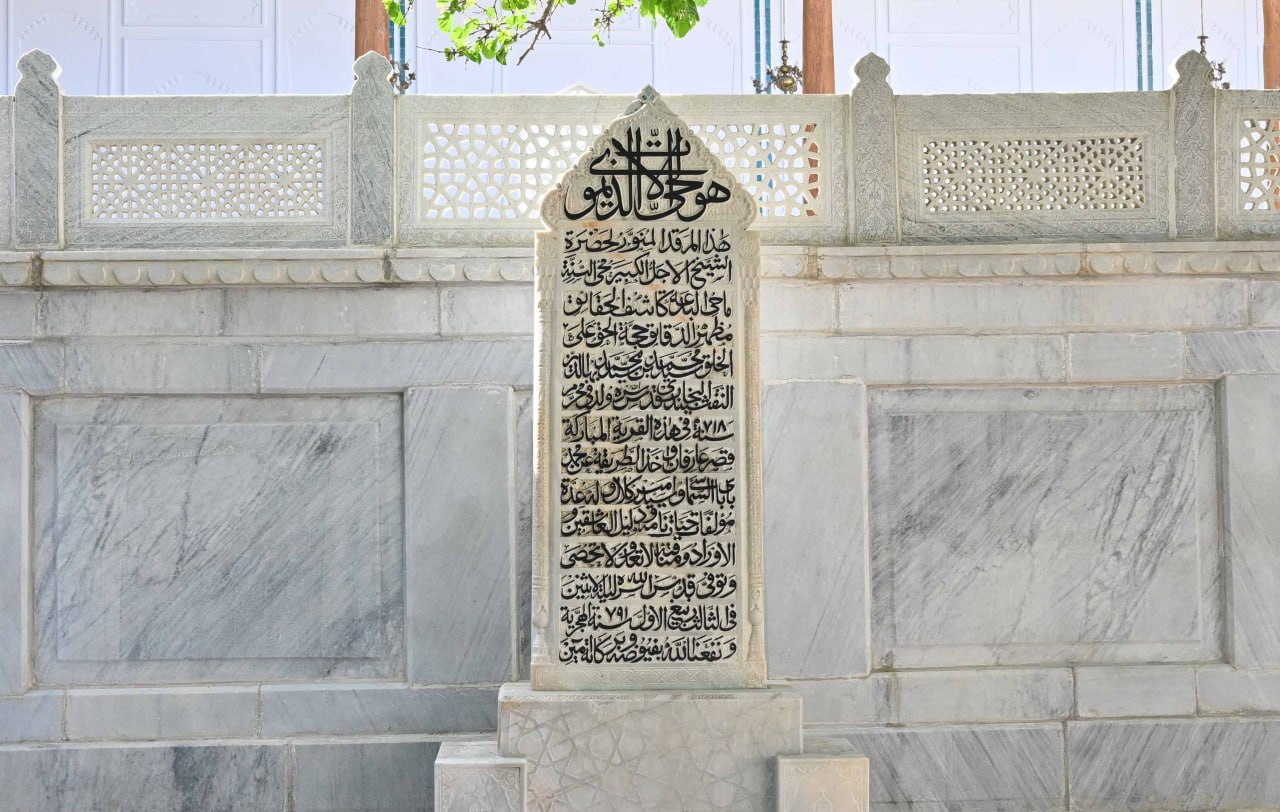 هو الحی الذی لا یموت
هذا المرقد المنور لحضرة
الشيخ الاجل الكبير محي السنة
ماحي البدعة كاشف الحقائق
مظهر الدقائق حجة الحق على
الخلق محمد بن محمد بهاالدين
النقشبندي قدس سره ولد في محرم
سنة ٧١٨ في هذه القرية المباركة
قصر عارفان واخذ الطريقة عن محمد
بابا السماسي وسيد امير كلال وله عدة
مؤلفات حياة نامه ودليل العاشقين و
الاوراد ومناقبه لا تعد ولا تحصى
وتوفي قدس الله سره ليلة الاثنين
في الثالث ربيع الاول سنة ٧٩١ الهجرية
ونفعنا الله بفيوضه وبركاته آمين